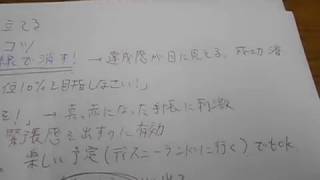 立てる
コツ
線で消す! → 達成感が目に見える、成功
位10%を目指しなさい!」
を!」 → 真っ赤になった手帳に刺激
緊張感を出すのに有効
楽しい予定(ディズニーランドに行く)でもok